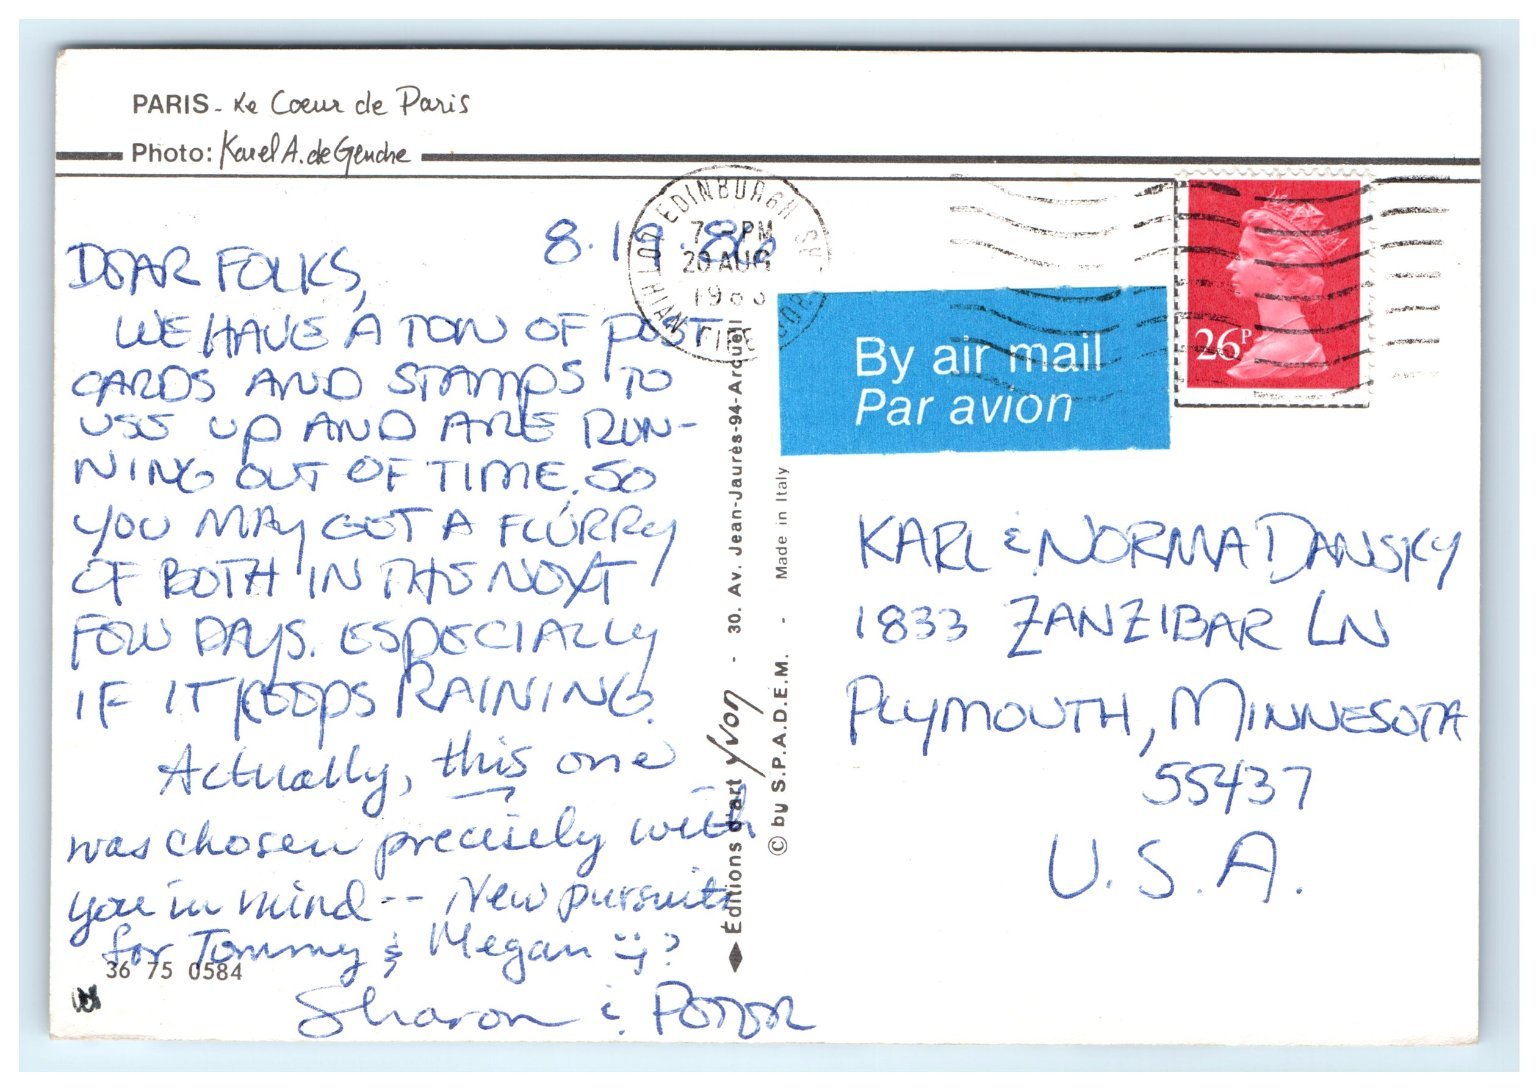 PARIS - Le Coeur de Paris
Photo: Karel A. de Gendre
8.19.86
DEAR FOLKS,
WE HAVE A TON OF POST
CARDS AND STAMPS TO
USE UP AND ARE RUN-
NING OUT OF TIME. SO
YOU MAY GET A FLURRY
OF BOTH IN THE NEXT
FEW DAYS. ESPECIALLY
IF IT KEEPS RAINING.
Actually, this one
was chosen precisely with
you in mind -- New pursuits
for Tommy & Megan ?
Sharon & PETER
36 75 0584
Éditions d'art Yvon - 30. Av. Jean-Jaurès-94-Arcueil
© by S.P.A.D.E.M. - Made in Italy
EDINBURGH
7 - PM
20 AUG
1986
By air mail
Par avion
26P
KARL & NORMA DANSKY
1833 ZANZIBAR LN
PLYMOUTH, MINNESOTA
55437
U.S.A.